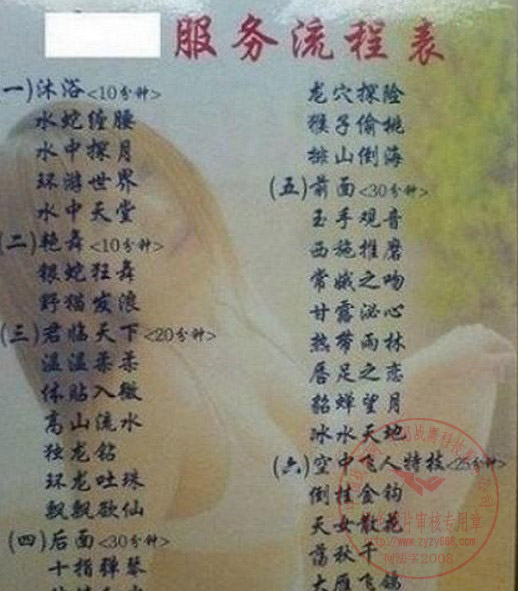 服务流程表
(一)沐浴<10分钟>
水蛇缠腰
水中探月
环游世界
水中天堂
(二)艳舞<10分钟>
银蛇狂舞
野猫发浪
(三)君临天下<20分钟>
温温柔柔
体贴入微
高山流水
独龙钻
环龙吐珠
飘飘欲仙
(四)后面<30分钟>
十指弹琴
龙穴探险
猴子偷桃
排山倒海
(五)前面<30分钟>
玉手观音
西施推磨
常娥之吻
甘露泌心
热带雨林
唇足之恋
貂蝉望月
冰水天地
(六)空中飞人特技<25分钟>
倒挂金钩
天女散花
荡秋千
大雁飞鸽
图片审核专用章
http://www.zyzy666.com